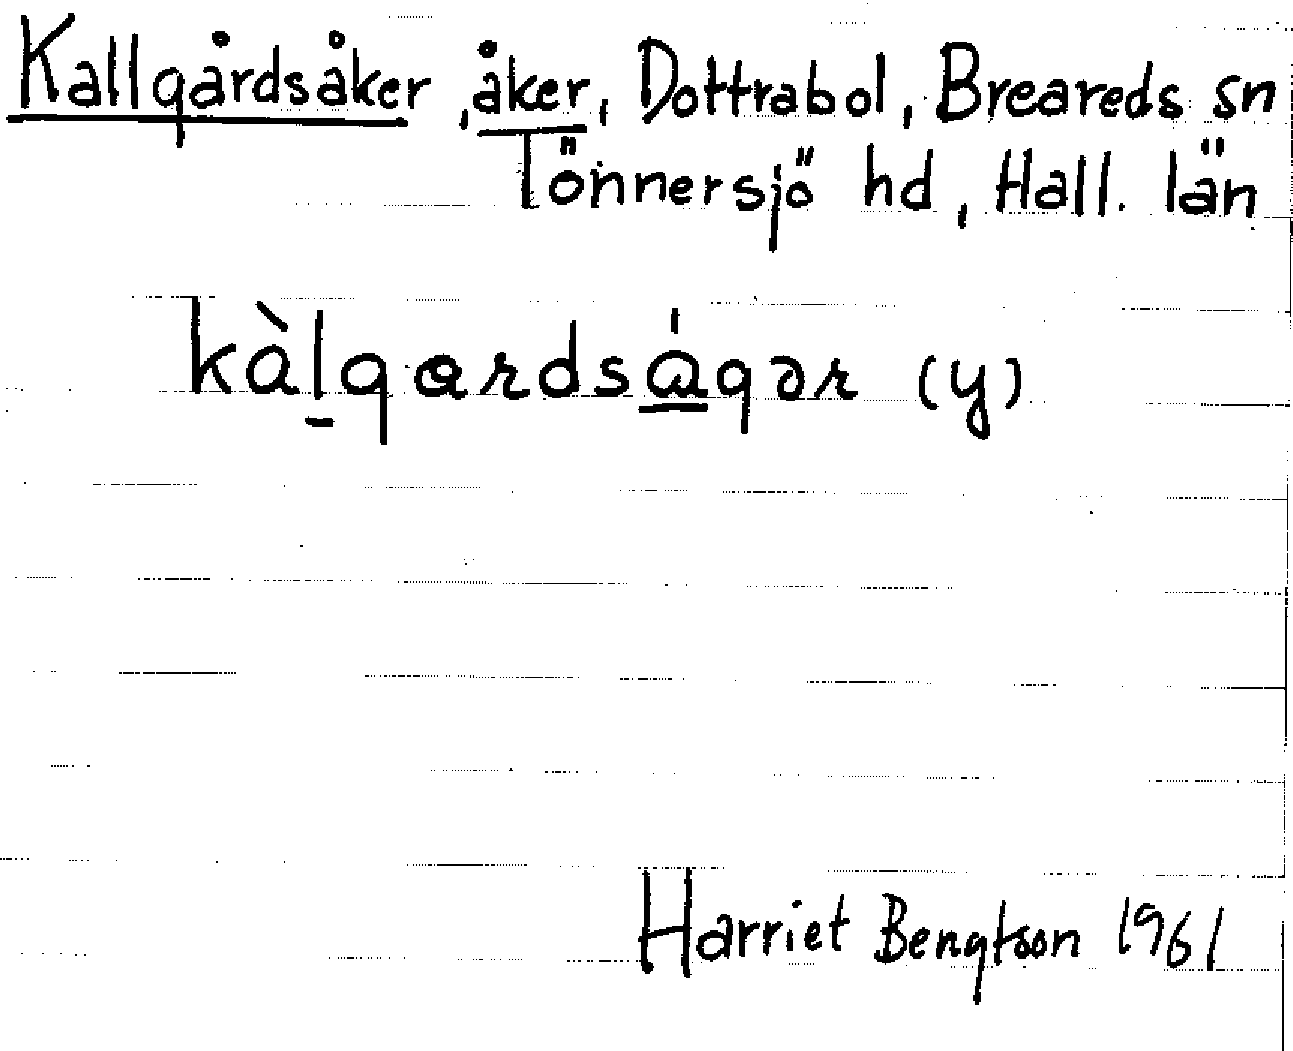 Kallgårdsåker, åker, Dottrabol, Breareds sn
Tönnersjö hd, Hall. län
kàl̠gardsa̠̍gər (y)
Harriet Bengtson 1961